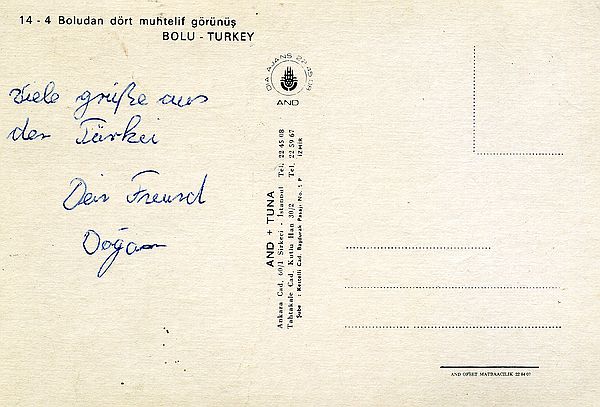 14 - 4 Boludan dört muhtelif görünüş
BOLU - TURKEY
Viele grüße aus
der Türkei
Dein Freund
Doğan
DIA AJANS 22 45 08
AND
AND + TUNA
Ankara Cad. 60/1 Sirkeci - İstanbul Tel. 22 45 08
Tahtakale Cad. Kutlu Han 30/2 Tel. 22 59 67
Şube : Kestelli Cad. Başdurak Pasajı No. 1 P İZMİR
AND OFSET MATBAACILIK 22 84 07